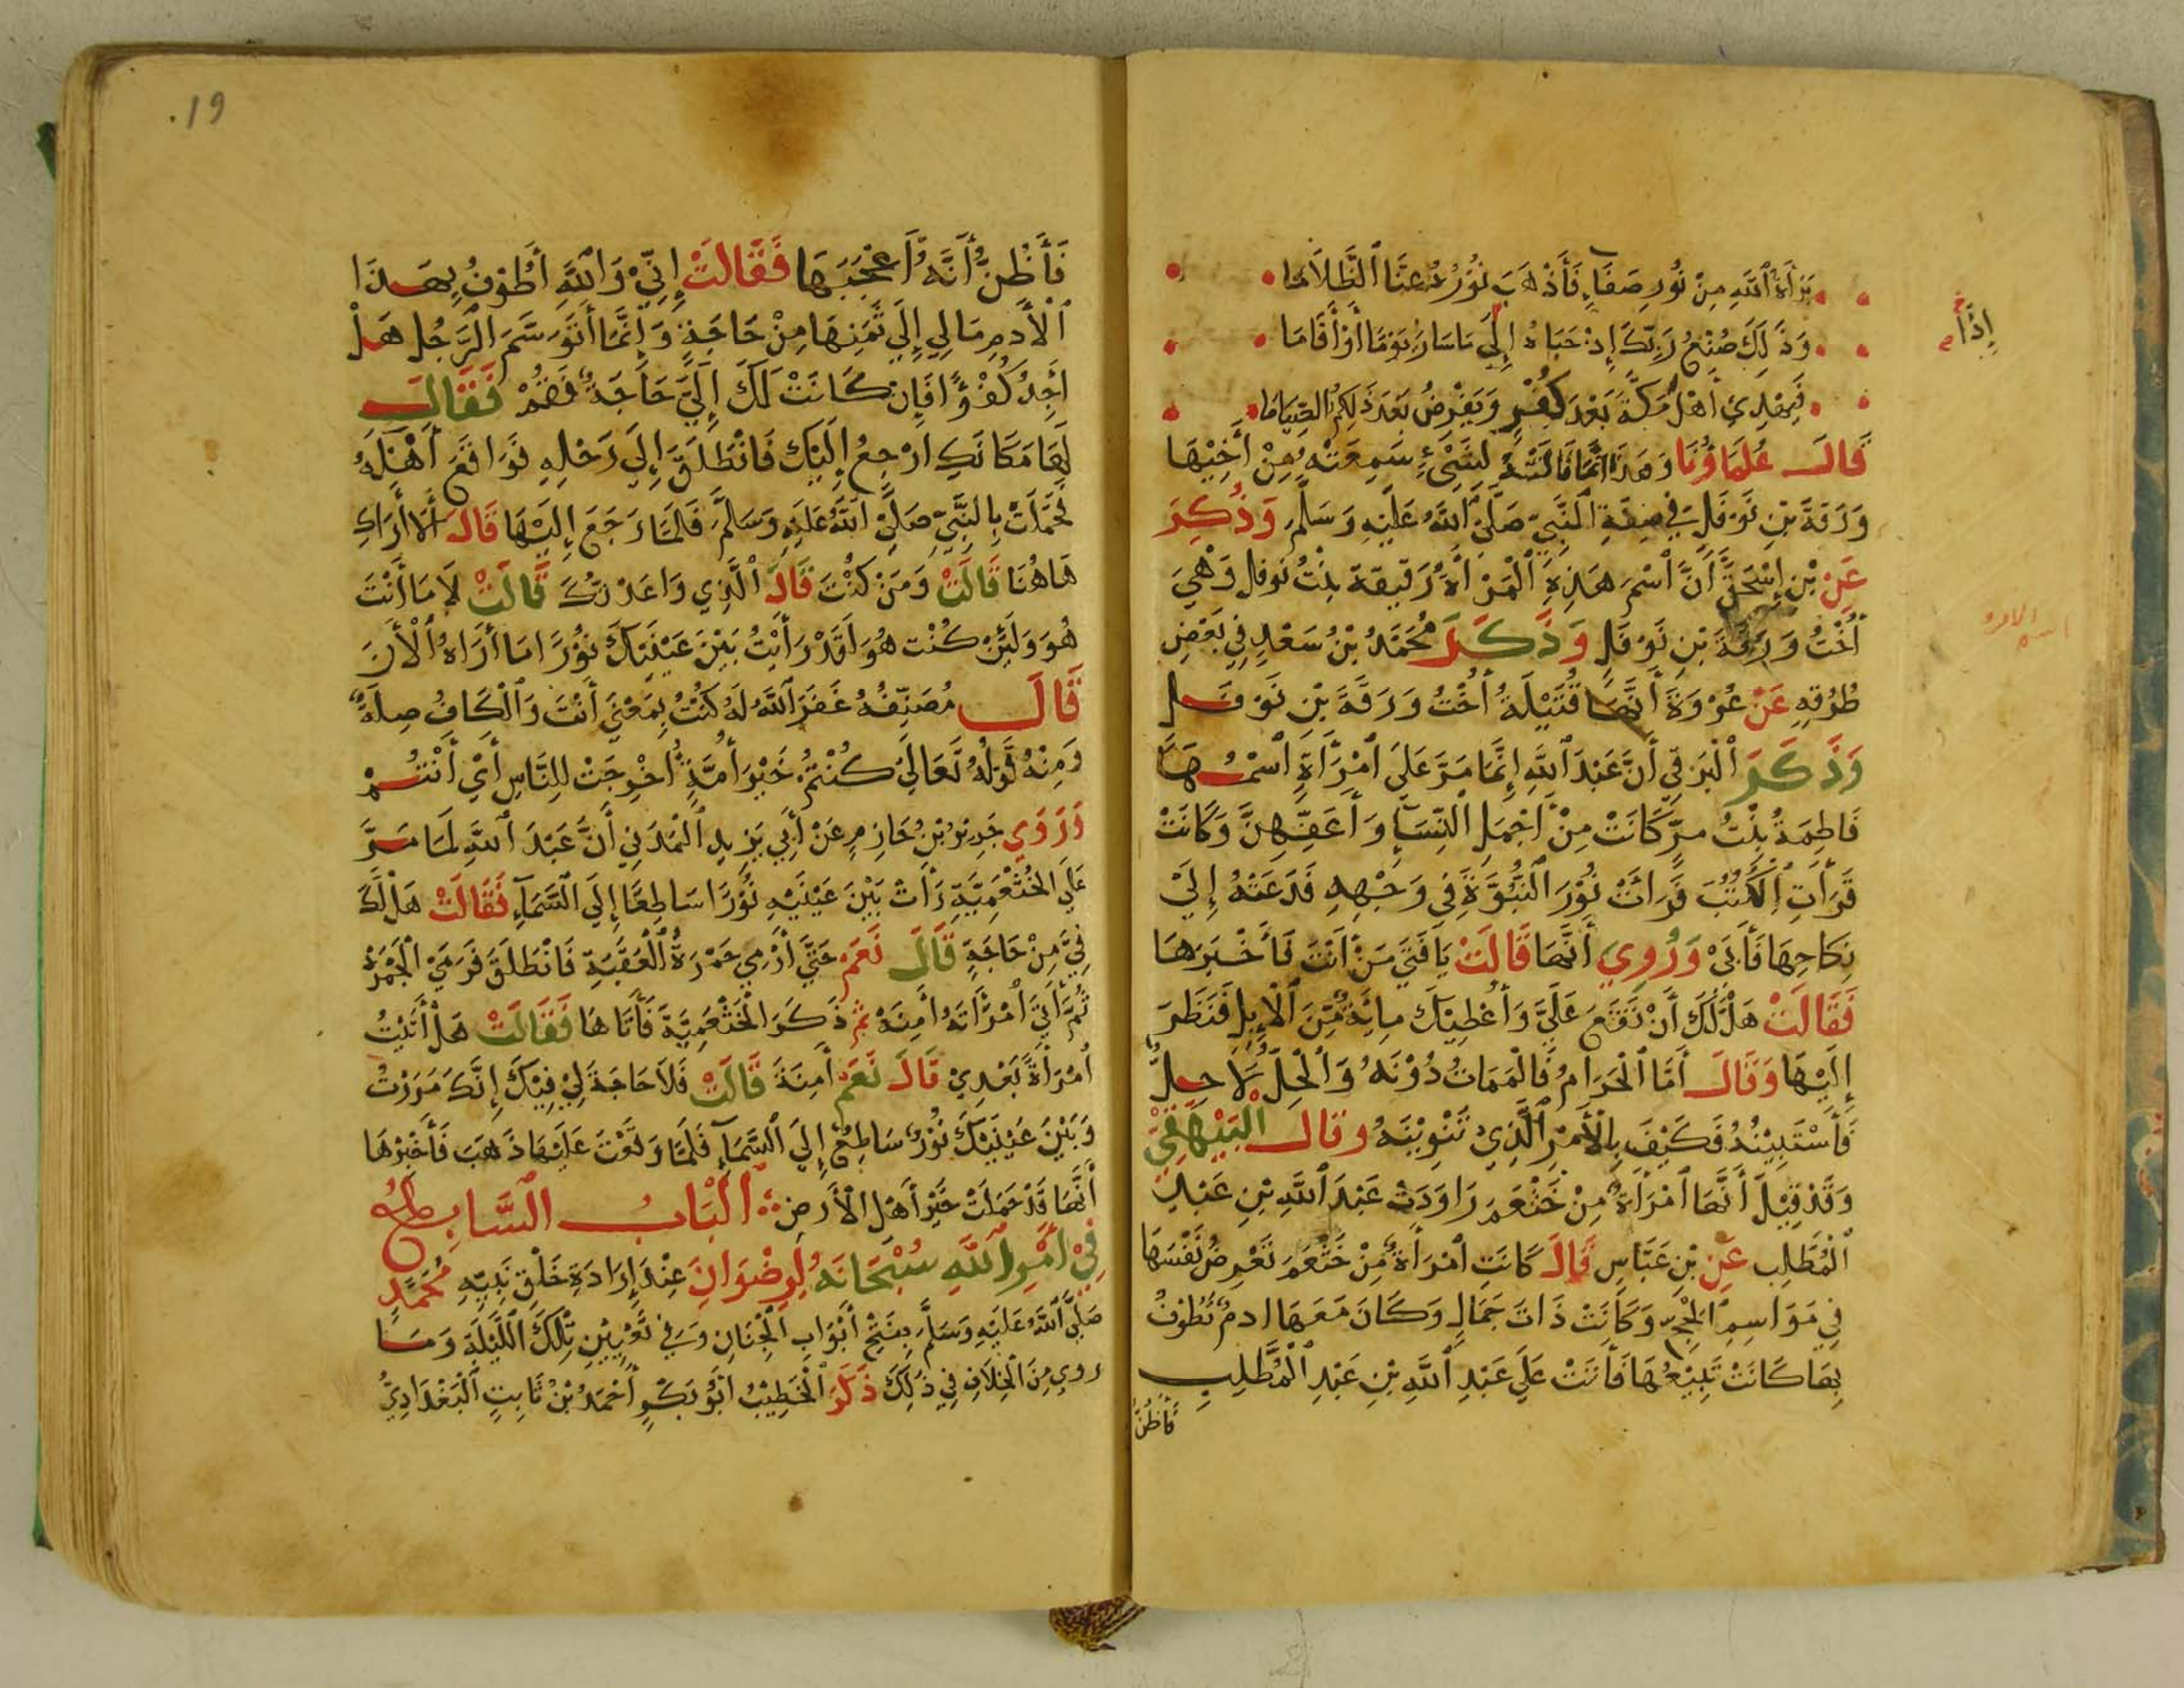 بَرَاهُ ٱللَّهُ مِنْ نُورٍ صَفَاءٍ فَأَذْهَبَ نُورُهُ عَنَّا ٱلظَّلَامَا
وَذَلِكَ صُنْعُ رَبِّكَ إِذْ حَبَاهُ إِلَى مَا سَارَ يَوْمًا أَوْ أَقَامَا
إِذًا
فَيَهْدِي أَهْلَ مَكَّةَ بَعْدَ كُفْرٍ وَيَفْرِضُ بَعْدَ ذَلِكُمُ الصِّيَامَا
قَالَ عُلَمَاؤُنَا وَهَذَا إِنَّمَا قَالَتْهُ لِشَيْءٍ سَمِعَتْهُ مِنْ أَخِيْهَا
وَرَقَةَ بْنِ نَوْفَلٍ فِي صِفَةِ ٱلنَّبِيِّ صَلَّى ٱللَّهُ عَلَيْهِ وَسَلَّمَ وَذُكِرَ
عَنْ بْنِ إِسْحَقَ أَنَّ ٱسْمَ هَذِهِ ٱلْمَرْأَةِ رَقِيقَةُ بِنْتُ نَوْفَلٍ وَهْيَ
اسم الامراه
أُخْتُ وَرَقَةَ بْنِ نَوْفَلٍ وَذَكَرَ مُحَمَّدُ بْنُ سَعْدٍ فِي بَعْضِ
طُرُقِهِ عَنْ عُرْوَةَ أَنَّهَا قُتَيْلَةُ أُخْتُ وَرَقَةَ بْنِ نَوْفَلٍ
وَذَكَرَ ٱلْبَرَقِي أَنَّ عَبْدَ ٱللَّهِ إِنَّمَا مَرَّ عَلَى ٱمْرَأَةٍ ٱسْمُهَا
فَاطِمَةُ بِنْتُ مرٍّ كَانَتْ مِنْ أَجْمَلِ ٱلنِّسَآءِ وَأَعَفِّهِنَّ وَكَانَتْ
قَرَأَتِ ٱلْكُتُبَ فَرَأَتْ نُوْرَ ٱلنُّبُوَّةِ فِي وَجْهِهِ فَدَعَتْهُ إِلَيْ
نِكَاحِهَا فَأَبَىْ وَرُوِيَ أَنَّهَا قَالَتْ يَا فَتَى مَنْ أَنْتَ فَأَخْبَرَهَا
فَقَالَتْ هَلْ لَّكَ أَنْ تَقَعَ عَلَيَّ وَأُعْطِيْكَ مِائَةً مِّنَ ٱلْإِبِلِ فَنَظَرَ
إِلَيْهَا وَقَالَ أَمَّا ٱلْحَرَامُ فَالْمَمَاتُ دُوْنَهُ وَٱلْحِلُّ لَا حِلٌّ
فَأَسْتَبِيْنُهُ فَكَيْفَ بِالْأَمْرِ ٱلَّذِيْ تَنْوِيْنَهُ وقال ٱلْبَيْهَقِيُّ
وَقَدْ قِيْلَ أَنَّهَا ٱمْرَأَةٌ مِنْ خَثْعَمَ رَاوَدَتْ عَبْدَ ٱللَّهِ بْنِ عَبْدِ
ٱلْمُطَّلِبِ عَنِ بْنِ عَبَّاسٍ قَالَ كَانَتِ ٱمْرَأَةٌ مِّنْ خَثْعَمَ تَعْرِضُ نَفْسَهَا
فِي مَوَاسِمِ ٱلْحَجِّ وَكَانَتْ ذَاتَ جَمَالٍ وَكَانَ مَعَهَا ادمٌ تَطُوْفُ
بِهَا كَانَتْ تَبِيْعُهَا فَأَتَتْ عَلَى عَبْدِ ٱللَّهِ بْنِ عَبْدِ ٱلْمُطَّلِبِ
فَأَظُنُّ
١٩
فَأَظُنُّ أَنَّهُ أَعْجَبَهَا فَقَالَتْ إِنِّيْ وَٱللَّهِ أَطُوْفُ بِهَذَا
ٱلْأَدمِ مَا لِي إِلَى ثَمَنِهَا مِنْ حَاجَةٍ وَإِنَّمَا أَتَوَسَّمُ ٱلرَّجُلَ هَلْ
أَجِدُ كُفْؤًا فَإِنْ كَانَتْ لَكَ إِلَيَّ حَاجَةٌ فَقُمْ فَقَالَ
لَهَا مَكَانَكِ ارْجِعُ إِلَيْكِ فَانْطَلَقَ إِلَى رَحْلِهِ فَوَاقَعَ أَهْلَهُ
فَحَمَلَتْ بِالنَّبِيِّ صَلَّى ٱللَّهُ عَلَيْهِ وَسَلَّمَ فَلَمَّا رَجَعَ إِلَيْهَا قَالَ أَلَا أَرَاكِ
هَاهُنَا قَالَتْ وَمَنْ كُنْتَ قَالَ ٱلَّذِي وَاعَدْتُكِ قَالَتْ لَا مَا أَنْتَ
هُوَ وَلَئِنْ كُنْت هُوَ لَقَدْ رَأَيْتُ بَيْنَ عَيْنَيْكَ نُوْرًا مَا أَرَاهُ ٱلْأَنَ
قَالَ مُصَنِّفُهُ غَفَرَ ٱللَّهُ لَهُ كُنْتُ بِمَعْنَى أَنْتَ وَٱلْكَافُ صِلَةٌ
وَمِنْهُ قَوْلُهُ تَعَالَى كُنْتُمْ خَيْرَ أُمَّةٍ أُخْرِجَتْ لِلنَّاسِ أَيْ أَنْتُمْ
وَرَوَي جَرِيْرُ بْنُ حَازِمٍ عَنْ أَبِي يَزِيدَ ٱلْمَدَنِي أَنَّ عَبْدَ ٱللَّهِ لَمَا مَرَّ
عَلَى الْخَثْعَمِيَّةِ رَأَتْ بَيْنَ عَيْنَيْهِ نُوْرًا سَاطِعًا إِلَى ٱلسَّمَآءِ فَقَالَتْ هَلْ لَكَ
فِيَّ مِنْ حَاجَةٍ قَالَ نَعَمْ حَتَّى أَرْمِي جَمْرَةُ ٱلْعَقَبَةِ فَانْطَلَقَ فَرَمَيَ ٱلْجَمْرَةَ
ثُمَّ أَتَى ٱمْرَأَتَهُ أَمِنَةَ ثم ذَكَرَ الْخَثْعَمِيَّةَ فَأَتَاهَا فَقَالَتْ هَلْ أَتَيْتُ
ٱمْرَأَةً بَعْدِيْ قَالَ نَعَمْ أَمِنَةَ قَالَتْ فَلَا حَاجَةَ لِيْ فِيْكَ إِنَّكَ مَرَرْتُ
وَبَيْنَ عَيْنَيْكَ نُوْرٌ سَاطِعٌ إِلَيَ ٱلسَّمَآءِ فَلَمَّا وَقَعْتَ عَلَيْهَا ذَهَبَ فَأَخْبِرْهَا
أَنَّهَا قَدْ حَمَلَتْ خَيْرَ أَهْلِ ٱلْأَرْضِ ٱلْبَابُ ٱلسَّابِعُ
فِيْ أَمْرِ ٱللَّهِ سُبْحَانَهُ لِرِضْوَانِ عِنْدَ إِرَادَةِ خَلْقِ نَبِيِّهِ مُحَمَّدٍ
صَلَّى ٱللَّهُ عَلَيْهِ وَسَلَّمَ بِفَتْحِ أَبْوَابِ ٱلْجِنَانِ وَفِي تَعْيِيْنِ تِلْكَ ٱللَّيْلَةِ وَمَا
روي مِنَ ٱلْخِلَافِ فِي ذَلِكَ ذَكَرَ ٱلْخَطِيْبُ أَبُوْ بَكْرٍ أَحْمَدُ بْنُ ثَابِتٍ ٱلْبَغْدَادِيُّ